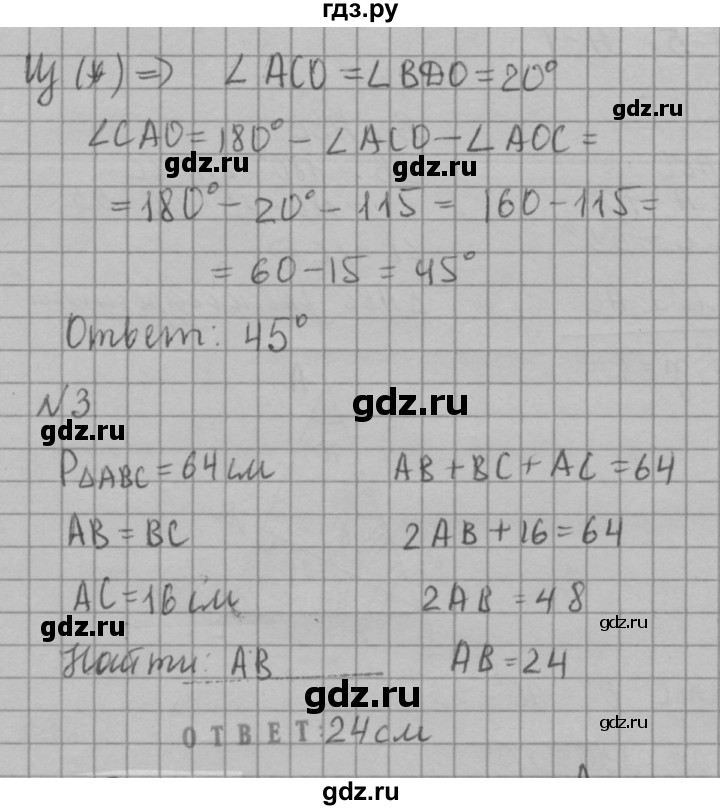 гдз.ру
Из (*) => ∠ ACO = ∠BDO = 20°
gdz.ru
∠CAO = 180° - ∠ACO - ∠AOC =
gdz.ru gdz.ru
= 180° - 20° - 115 = 160 - 115 =
= 60 - 15 = 45°
Ответ: 45°
N3
gdz.ru
gdz.ru
P△ABC = 64 см AB + BC + AC = 64
AB = BC 2AB + 16 = 64
AC = 16 см 2AB = 48
gdz.ru gdz.ru
Найти: AB AB = 24
gdz.ru
ОТВЕТ: 24 см
gdz.ru
gdz.ru